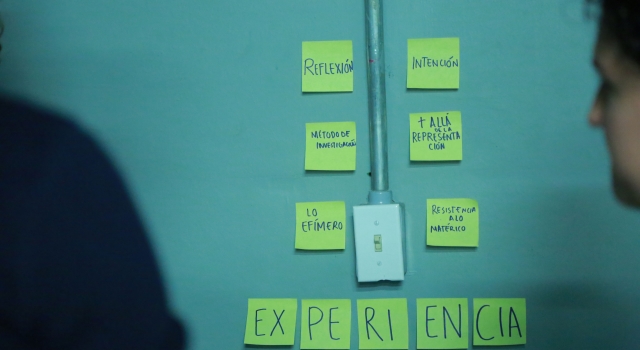 REFLEXIÓN
INTENCIÓN
MÉTODO DE
INVESTIGACIÓN
+ ALLÁ
DE LA
REPRESENTA
CIÓN
LO
EFÍMERO
RESISTENCIA
A LO
MATÉRICO
EXPERIENCIA